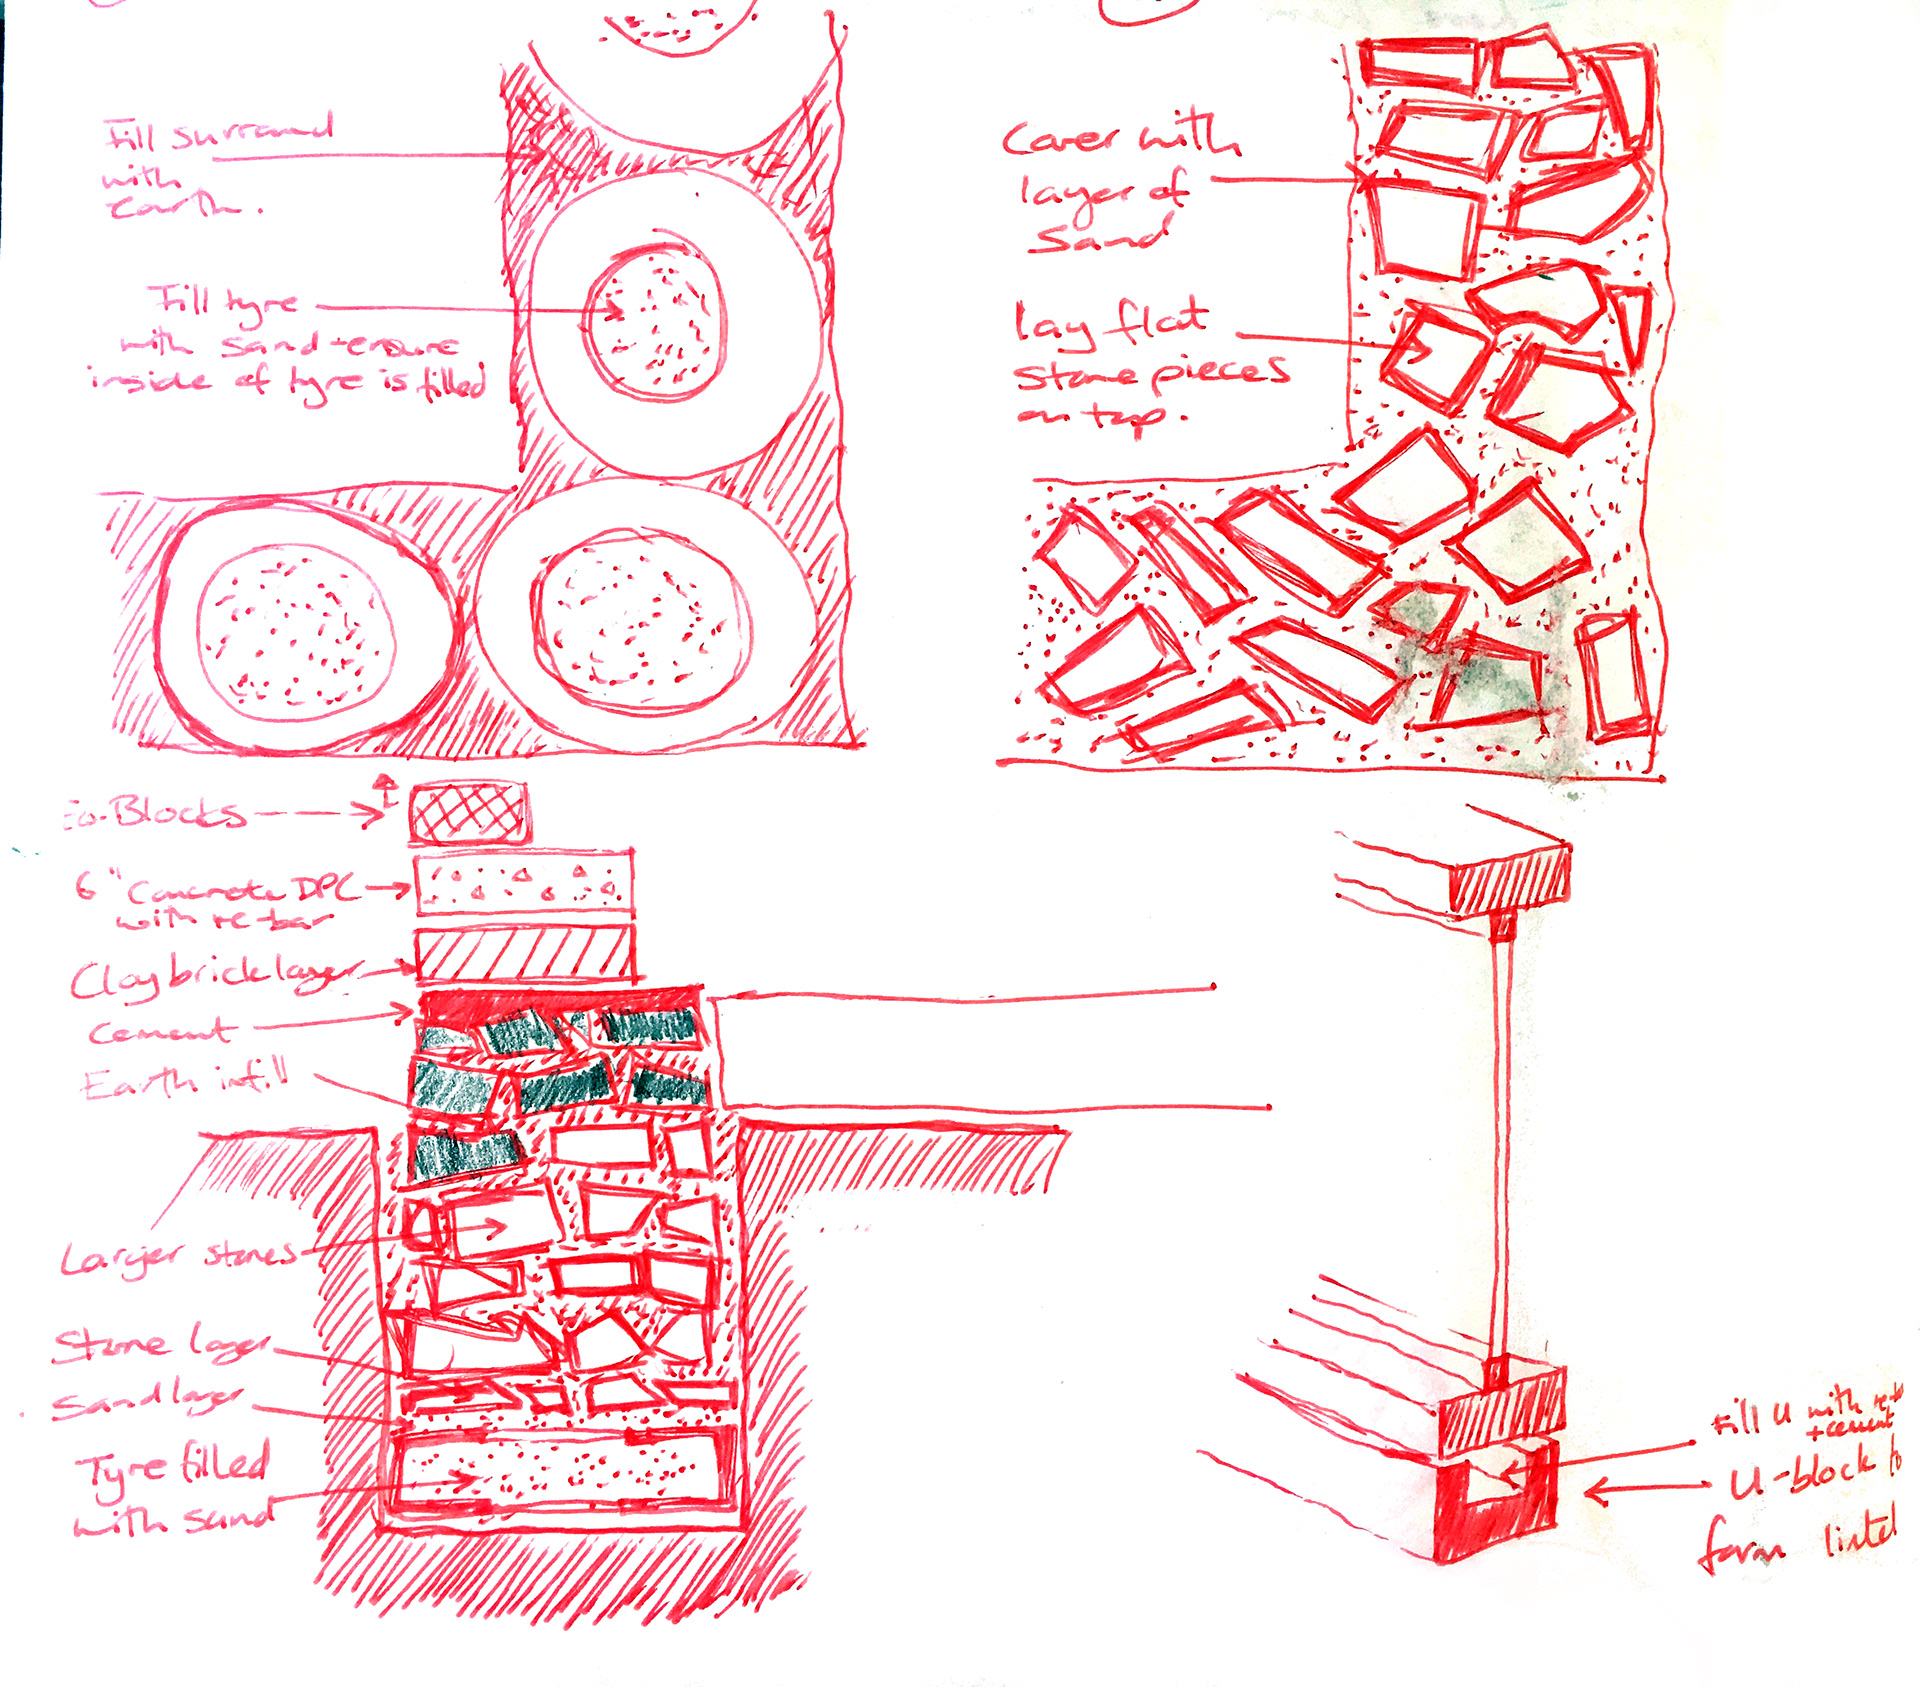 Fill surround
with
earth.
Fill tyre
with sand - ensure
inside of tyre is filled
Cover with
layer of
Sand
lay flat
stone pieces
on top.
-Blocks
6" Concrete DPC
with re-bar
Clay brick layer
cement
Earth infill
Larger stones
Stone layer
Sand layer
Tyre filled
with sand
Fill U with
+ cement
U-block to
form lintel